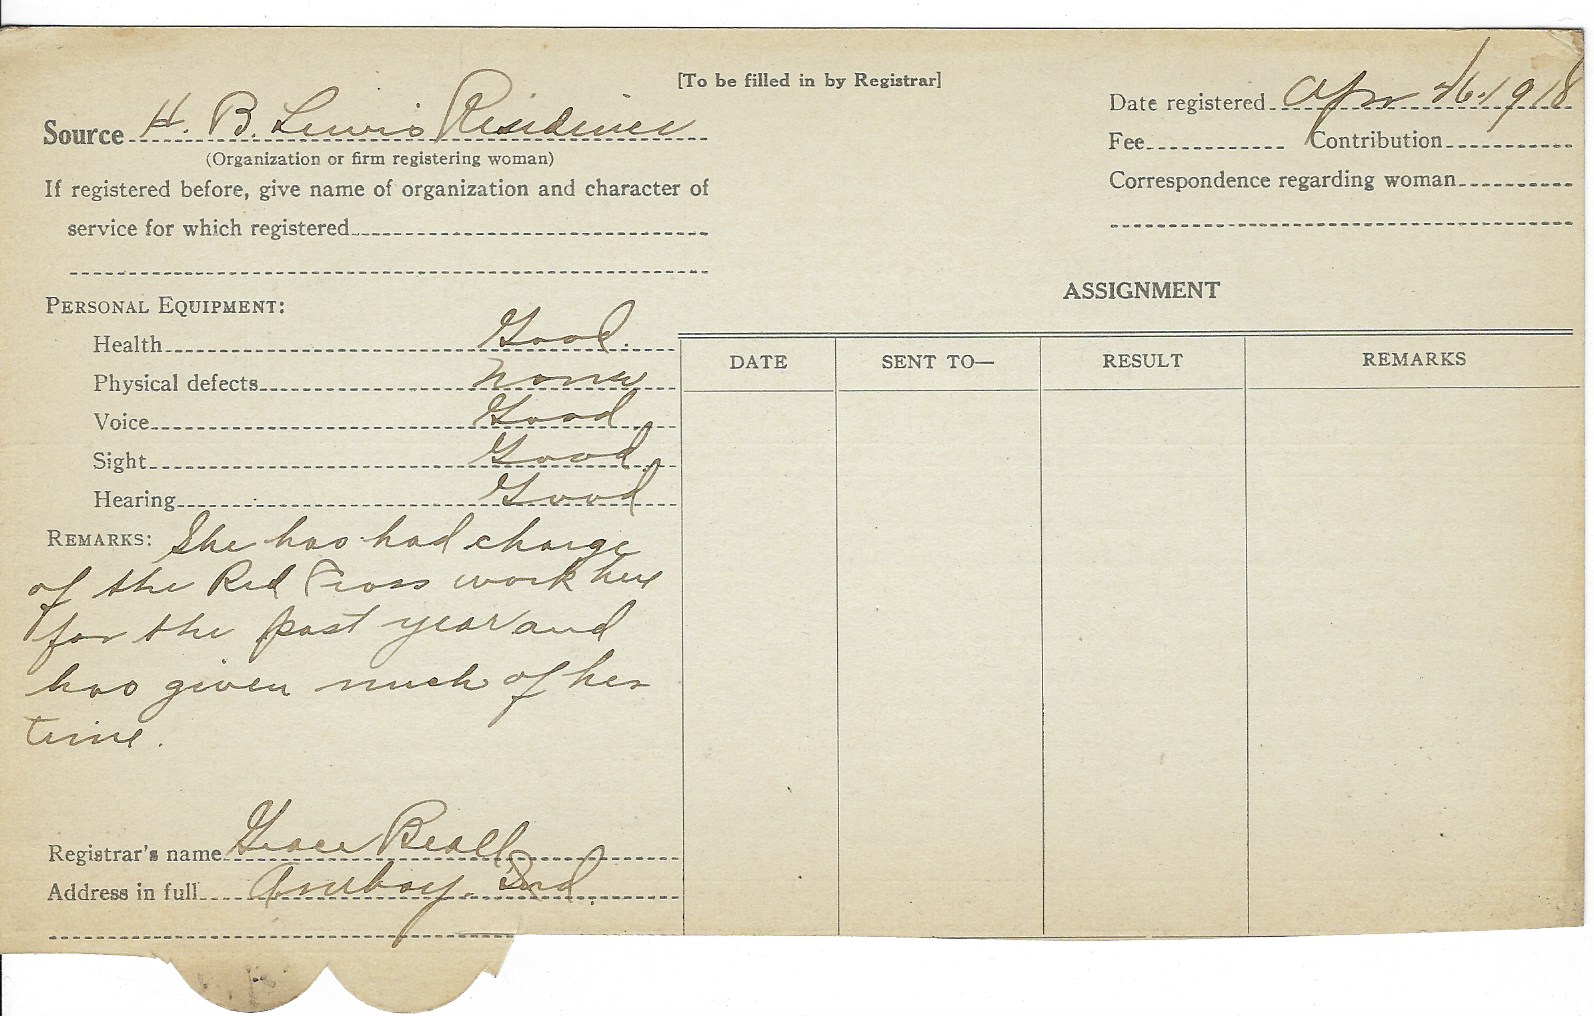 [To be filled in by Registrar]
Source H. B. Lewis Residence
(Organization or firm registering woman)
If registered before, give name of organization and character of
service for which registered
Date registered Apr 26-1918
Fee Contribution
Correspondence regarding woman
PERSONAL EQUIPMENT:
Health Good.
Physical defects None
Voice Good
Sight Good
Hearing Good
REMARKS: She has had charge
of the Red Cross work here
for the past year and
has given much of her
time.
Registrar's name Grace Beall
Address in full Amboy. Ind.
ASSIGNMENT
DATE SENT TO— RESULT REMARKS